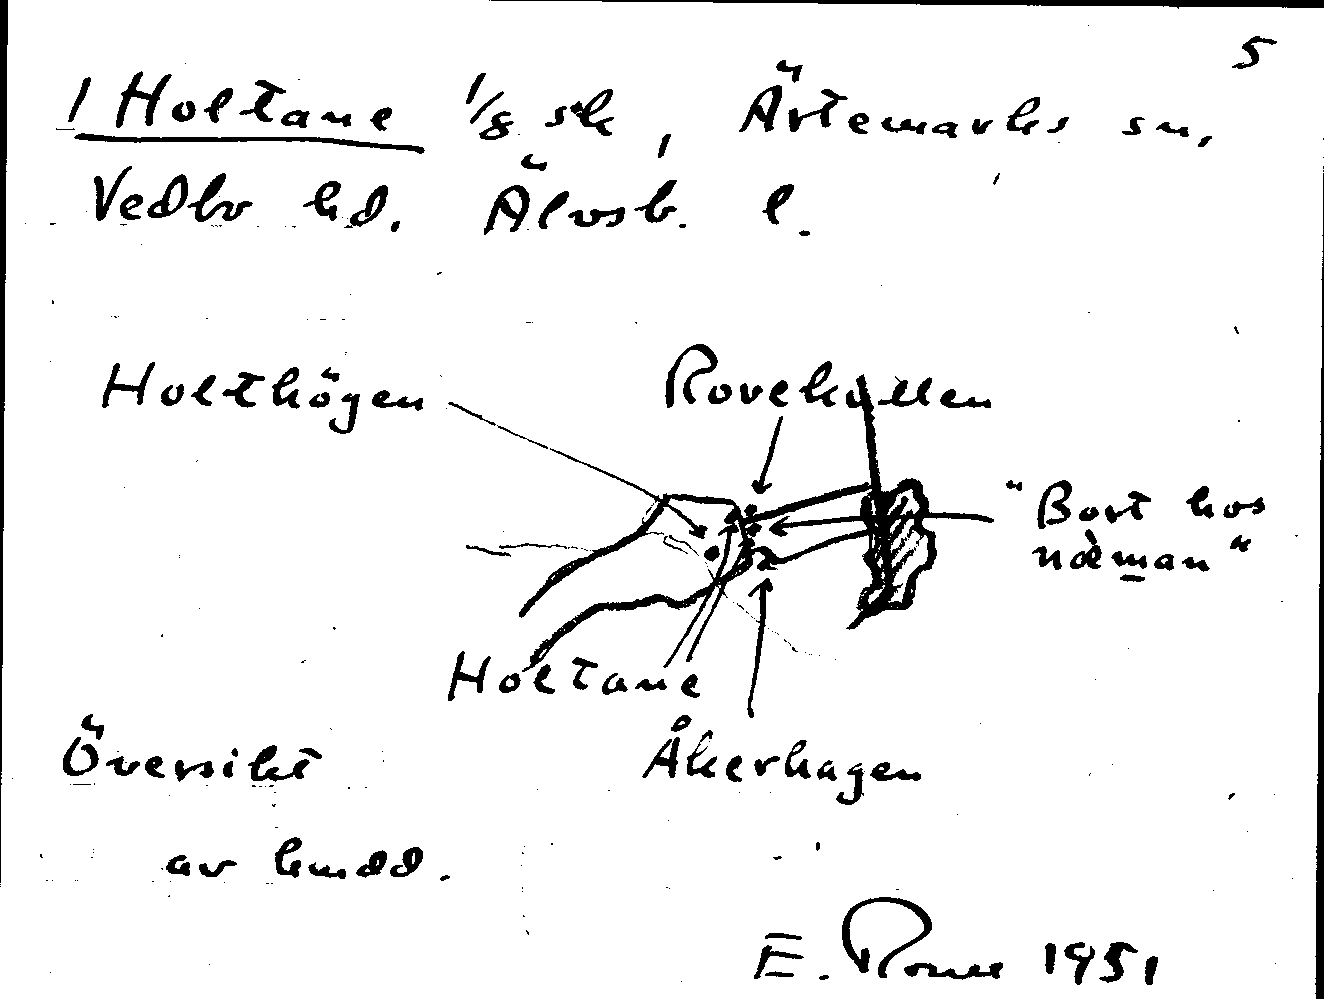 5
1 Holtane 1/8 sk, Ärtemarks sn,
Vedbo hd. Älvsb. l.
Holthögen
Rovekullen
"Bort hos
nämän"
Holtane
Åkerhagen
Översikt
av
E. 1951